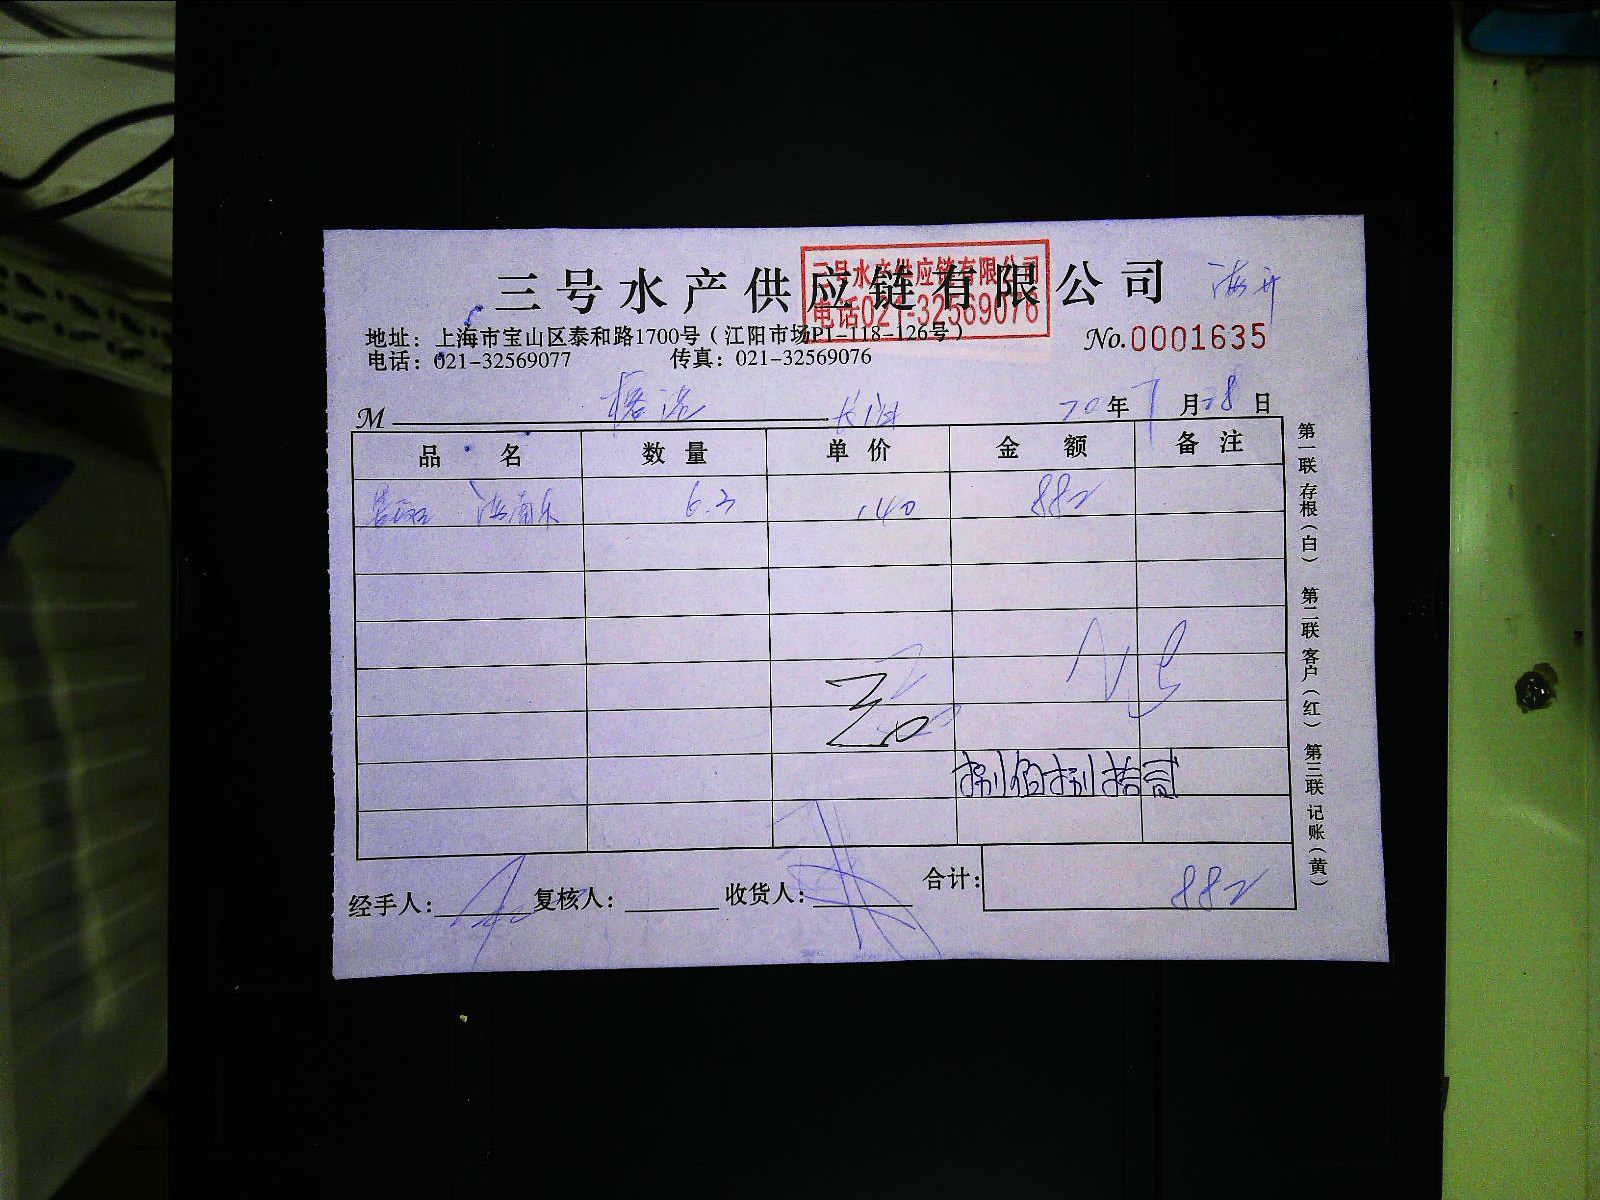 三号水产供应链有限公司
三号水产供应链有限公司
电话021-32569076
No.0001635
地址：上海市宝山区泰和路1700号（江阳市场P1-118-126号）
电话：021-32569077 传真：021-32569076
M 20年7月28日
品名 数量 单价 金额 备注
6.3 140 882
捌佰捌拾贰
合计：882
经手人： 复核人： 收货人：
第一联 存根（白） 第二联 客户（红） 第三联 记账（黄）